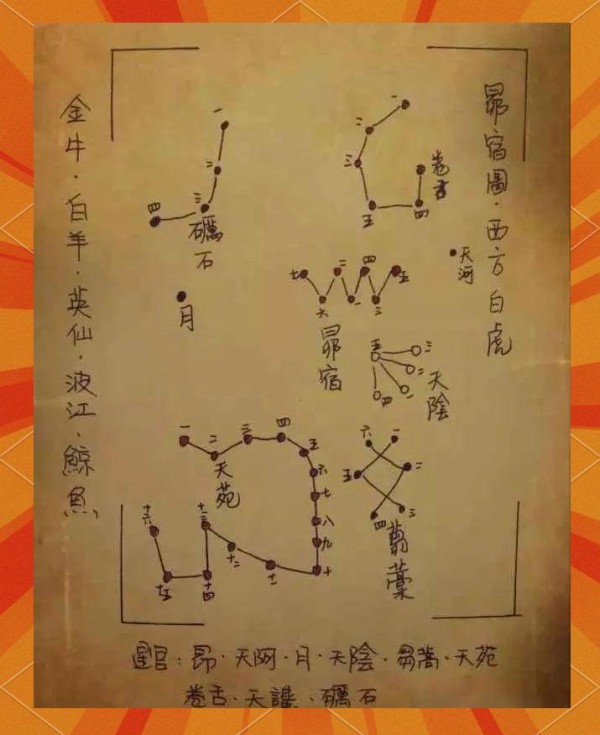 昴宿圖·西方白虎
一
二
三
五
四
卷舌
天河
一
二
三
四
礪石
月
七
二
四
五
六
一
三
昴宿
五
三
二
一
四
天陰
一
二
三
四
五
六
七
八
九
十
十一
十二
十三
十四
十五
十六
天苑
六
一
五
二
四
三
藁
金牛·白羊·英仙·波江·鯨魚
星官：昴·天阿·月·天陰·芻蒿·天苑
卷舌·天讒·礪石